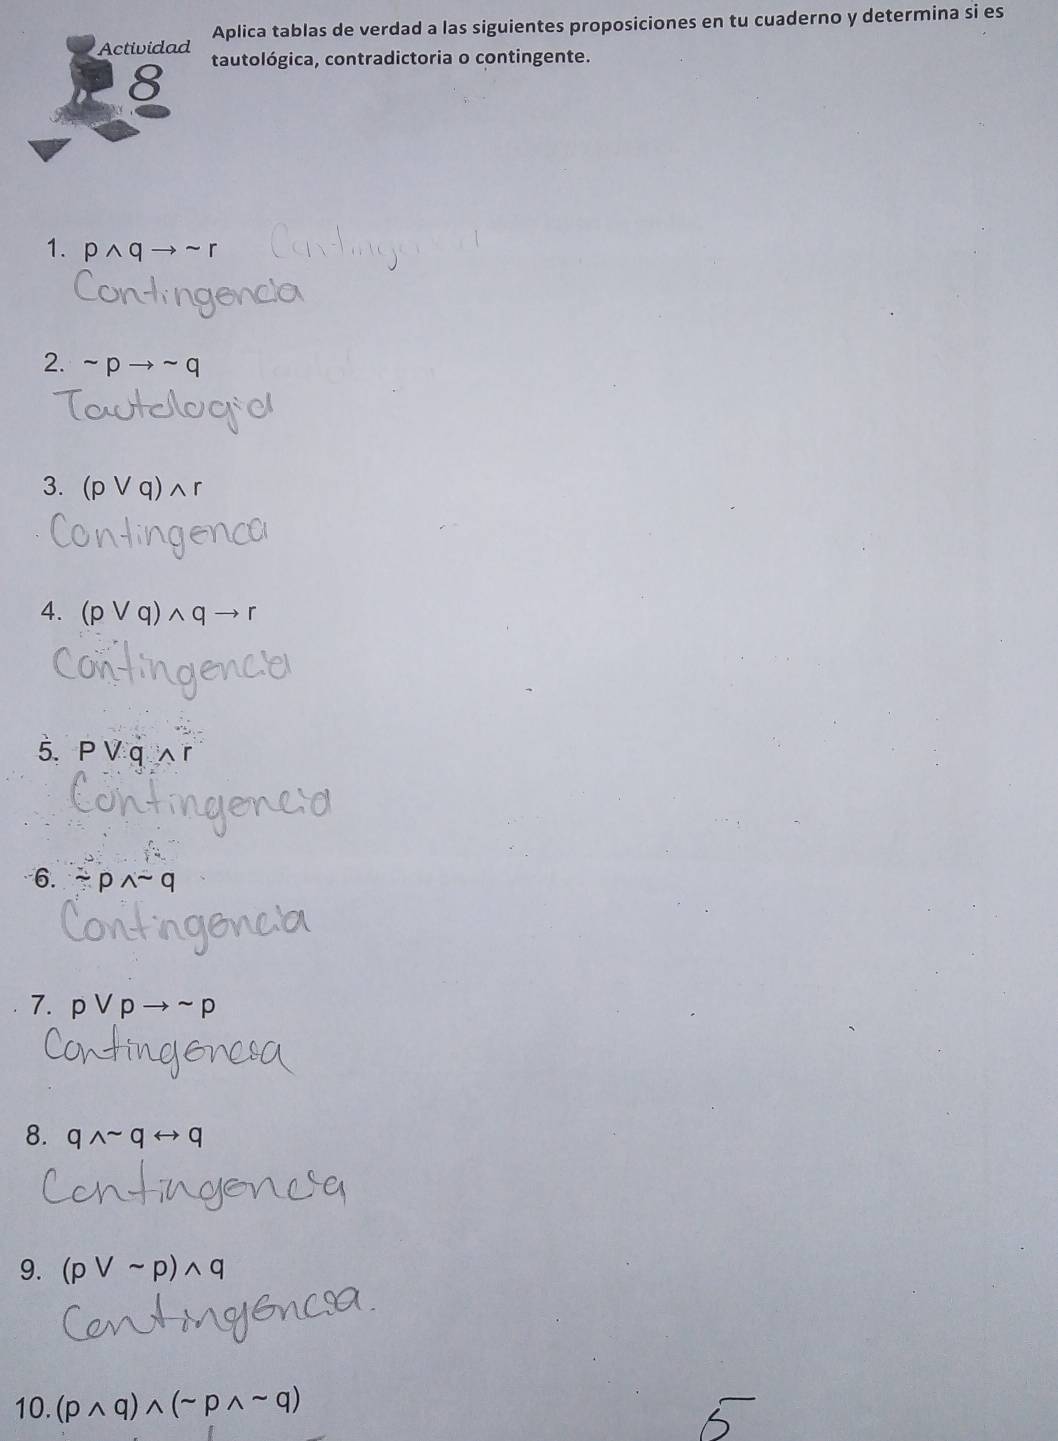 Actividad
8
Aplica tablas de verdad a las siguientes proposiciones en tu cuaderno y determina si es
tautológica, contradictoria o contingente.
1. p ∧ q → ~ r
Contingencia
2. ~ p → ~ q
Tautologia
3. (p V q) ∧ r
Contingenca
4. (p V q) ∧ q → r
Contingencia
5. P V q ∧ r
Contingencia
6. ~ p ∧ ~ q
Contingencia
7. p V p → ~ p
Contingencia
8. q ∧ ~ q ↔ q
Contingencia
9. (p V ~ p) ∧ q
Contingencia.
10. (p ∧ q) ∧ (~ p ∧ ~ q)
5